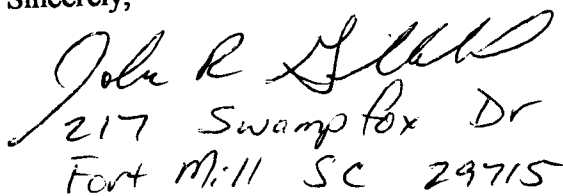 Sincerely,
John R
217 Swamp fox Dr
Fort Mill SC 29715